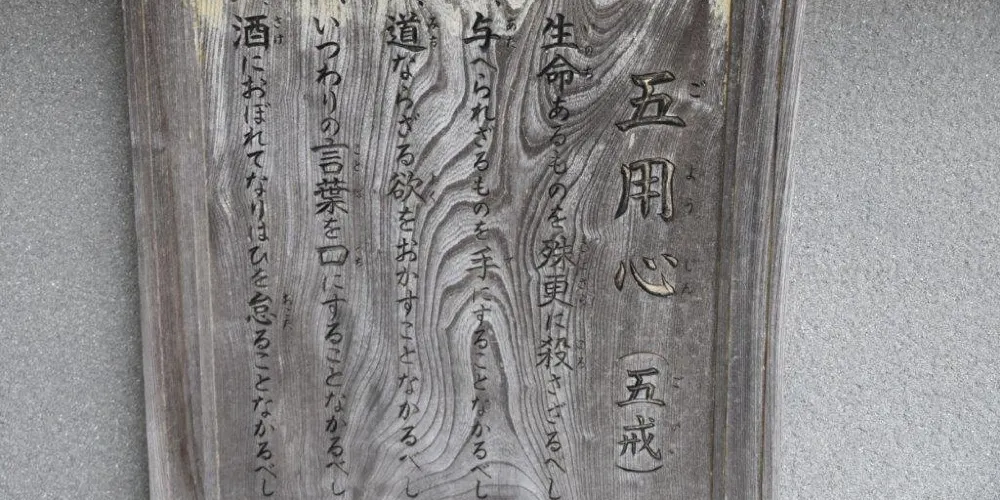 五用心（五戒）
生命あるものを殊更に殺さざるべし
与へられざるものを手にすることなかるべし
道ならざる欲をおかすことなかるべし
いつわりの言葉を口にすることなかるべし
酒におぼれてなりはひを怠ることなかるべし